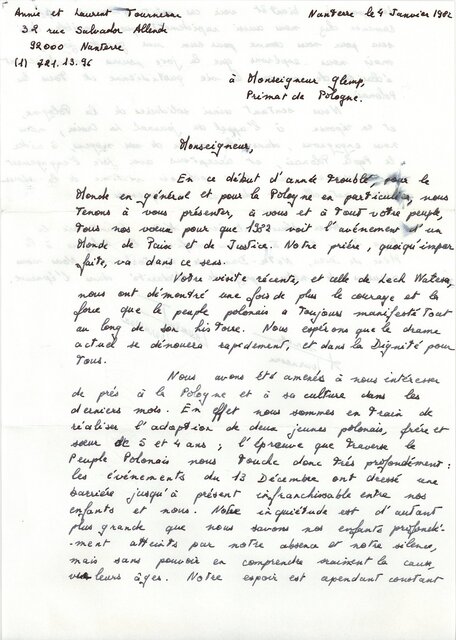 Annie et Laurent Tournerie
32 rue Salvador Allende
92000 Nanterre
(1) 721.13.96
Nanterre le 4 Janvier 1982
à Monseigneur Glemp,
Primat de Pologne.
Monseigneur,
En ce début d'année troublé, pour le
Monde en général et pour la Pologne en particulier, nous
tenons à vous présenter, à vous et à tout votre peuple,
tous nos vœux pour que 1982 voit l'avènement d'un
Monde de Paix et de Justice. Notre prière, quoiqu'impar
faite, va dans ce sens.
Votre visite récente, et celle de Lech Walesa,
nous ont démontré une fois de plus le courage et la
force que le peuple polonais a toujours manifesté tout
au long de son histoire. Nous espérons que le drame
actuel se dénouera rapidement, et dans la Dignité pour
tous.
Nous avons été amenés à nous intéresser
de près à la Pologne et à sa culture dans les
derniers mois. En effet nous sommes en train de
réaliser l'adoption de deux jeunes polonais, frère et
sœur de 5 et 4 ans ; l'épreuve que traverse le
Peuple Polonais nous touche donc très profondément :
les événements du 13 Décembre ont dressé une
barrière jusqu'à présent infranchissable entre nos
enfants et nous. Notre inquiétude est d'autant
plus grande que nous savons nos enfants profondé-
-ment atteints par notre absence et notre silence,
mais sans pouvoir en comprendre vraiment la cause,
vu leurs âges. Notre espoir est cependant constant